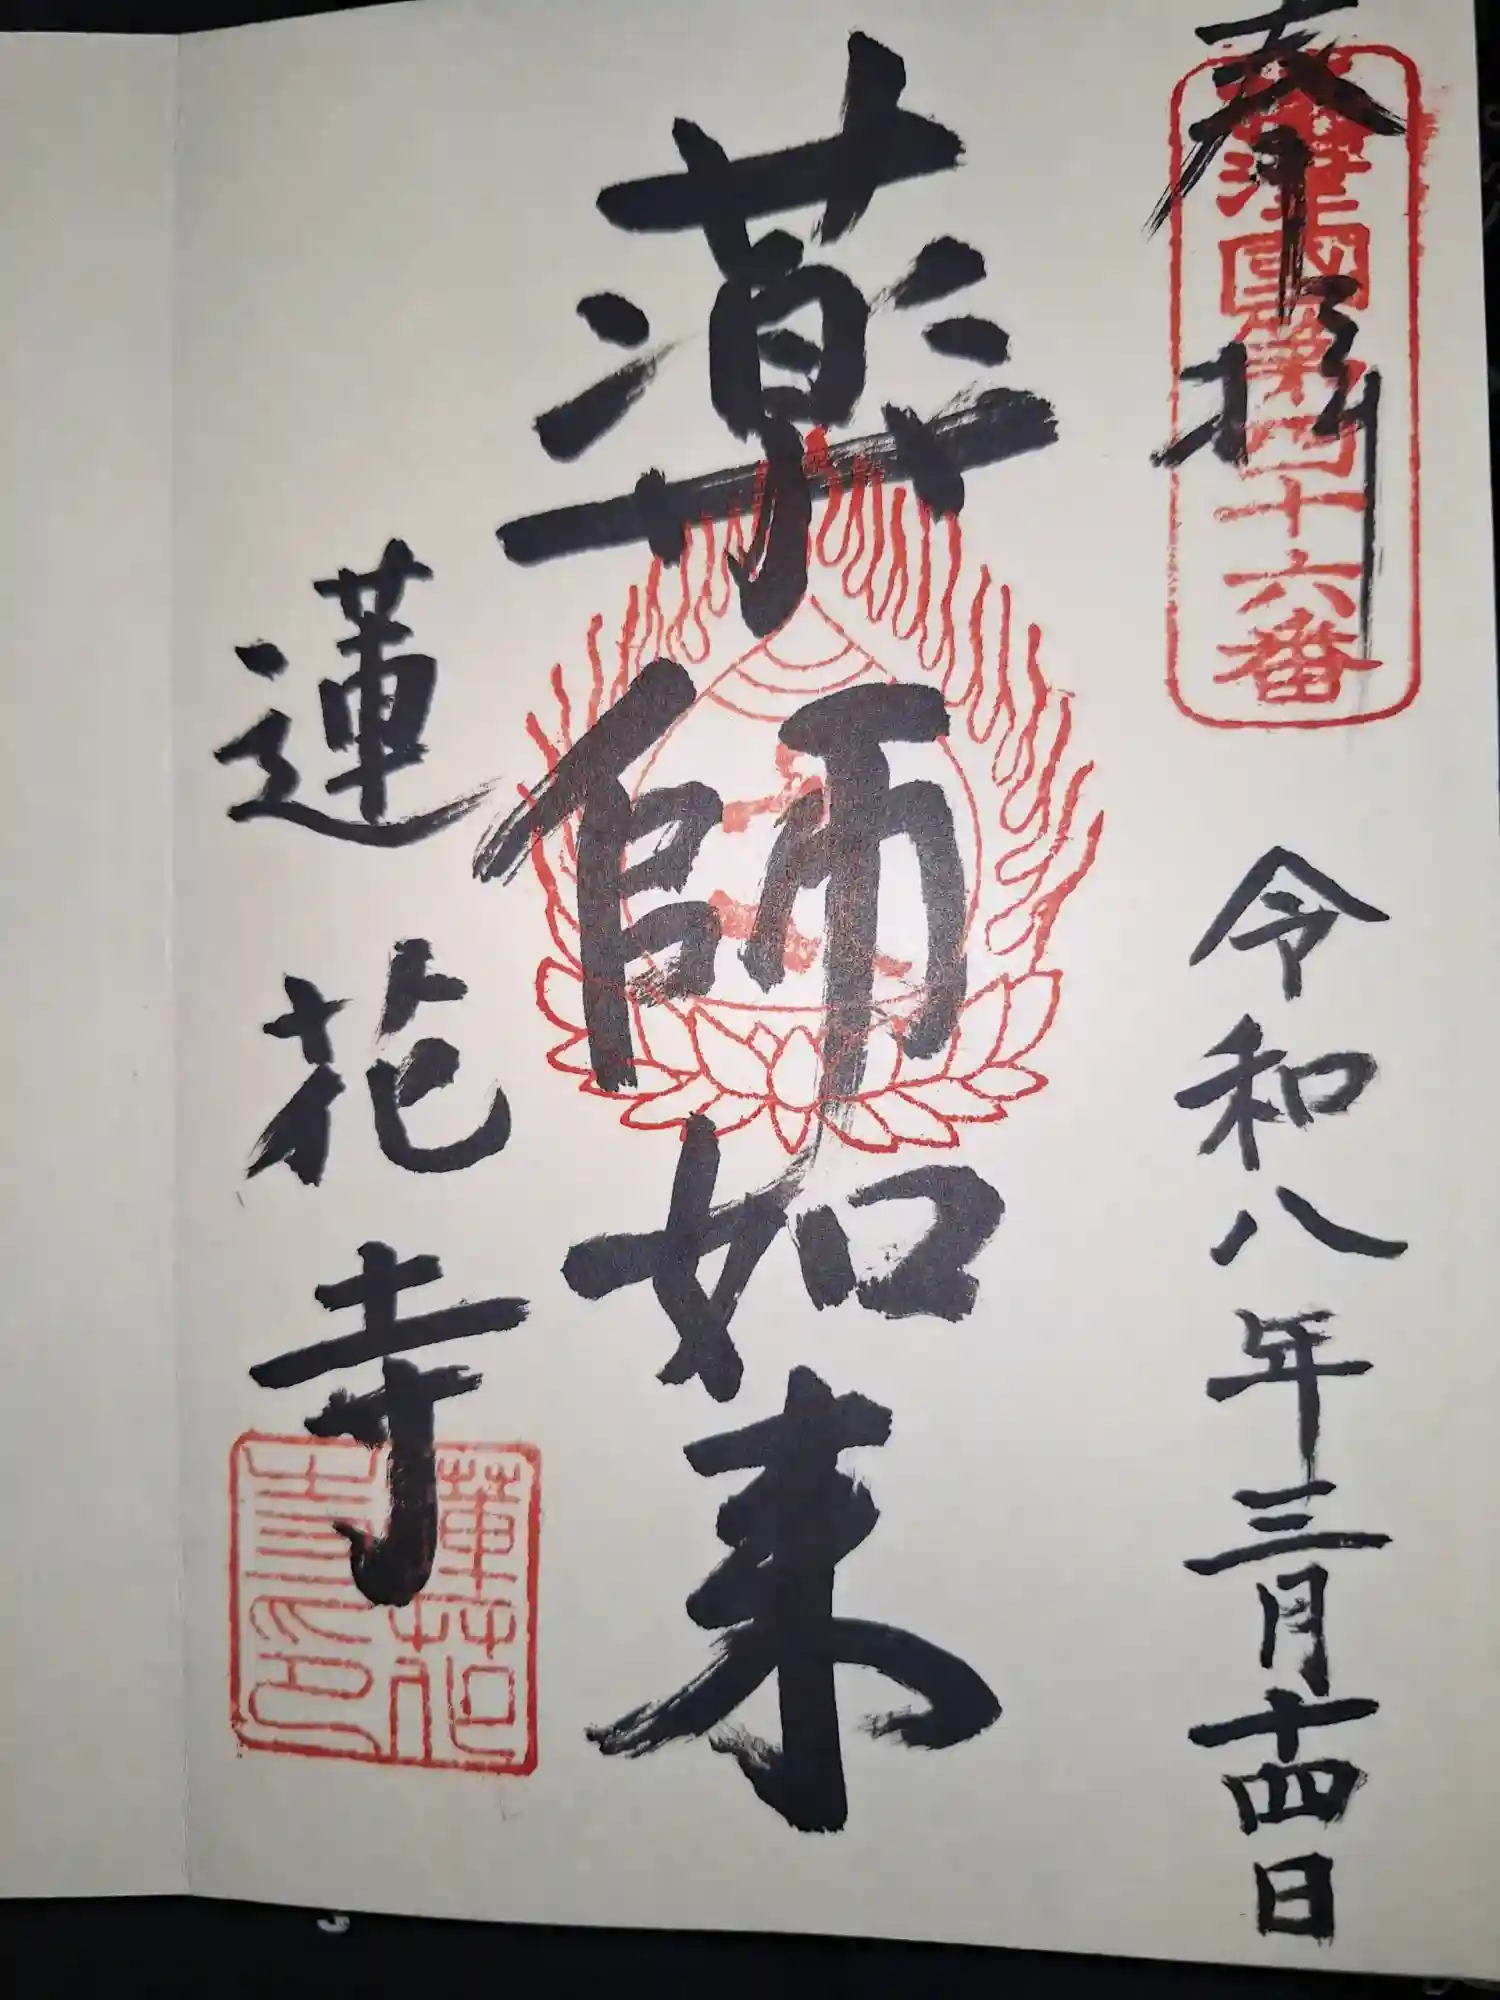 奉拝
津國第四十六番
令和八年三月十四日
薬師如来
蓮花寺
蓮花寺印